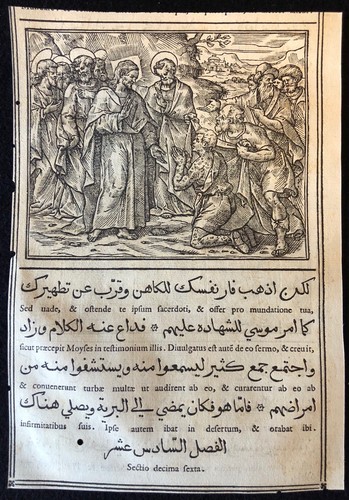 لكن اذهب فار نفسك للكاهن وقرّب عن تطهيرك
Sed uade, & ostende te ipsum sacerdoti, & offer pro mundatione tua,
كما امر موسي للشهاده عليهم * فذاع عنه الكلام وزاد
sicut præcepit Moyses in testimonium illis. Diuulgatus est autē de eo sermo, & creuit,
واجتمع جمع كثير ليسمعوا منه ويستشفوا منه من
& conuenerunt turbæ multæ ut audirent ab eo, & curarentur ab eo ab
امراضهم * فاما هو فكان يمضي الي البرية ويصلي هناك
infirmitatibus suis. Ipse autem ibat in desertum, & orabat ibi.
الفصل السّادس عشر
Sectio decima sexta.